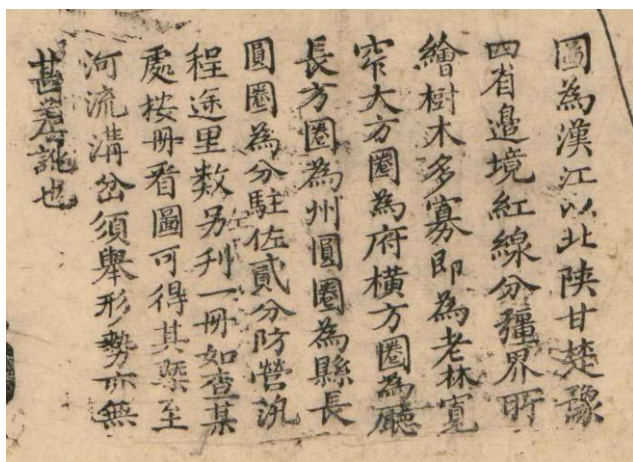 圖為漢江以北陕甘楚豫
四省邉境紅線分疆界所
繪樹木多寡即為老林寬
窄大方圈為府橫方圈為廳
長方圈為州圓圈為縣長
圓圈為分駐佐貳分防營汛
程途里数另刊一冊如查某
處按冊看圖可得其槩至
河流溝岔須舉形勢亦無
甚差訛也